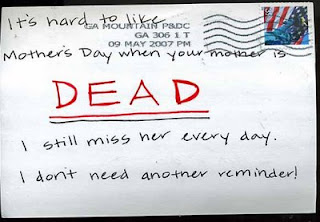 It's hard to like
GA MOUNTAIN P&DC
GA 306 1 T
09 MAY 2007 PM
Mother's Day when your mother is
DEAD
I still miss her every day.
I don't need another reminder!